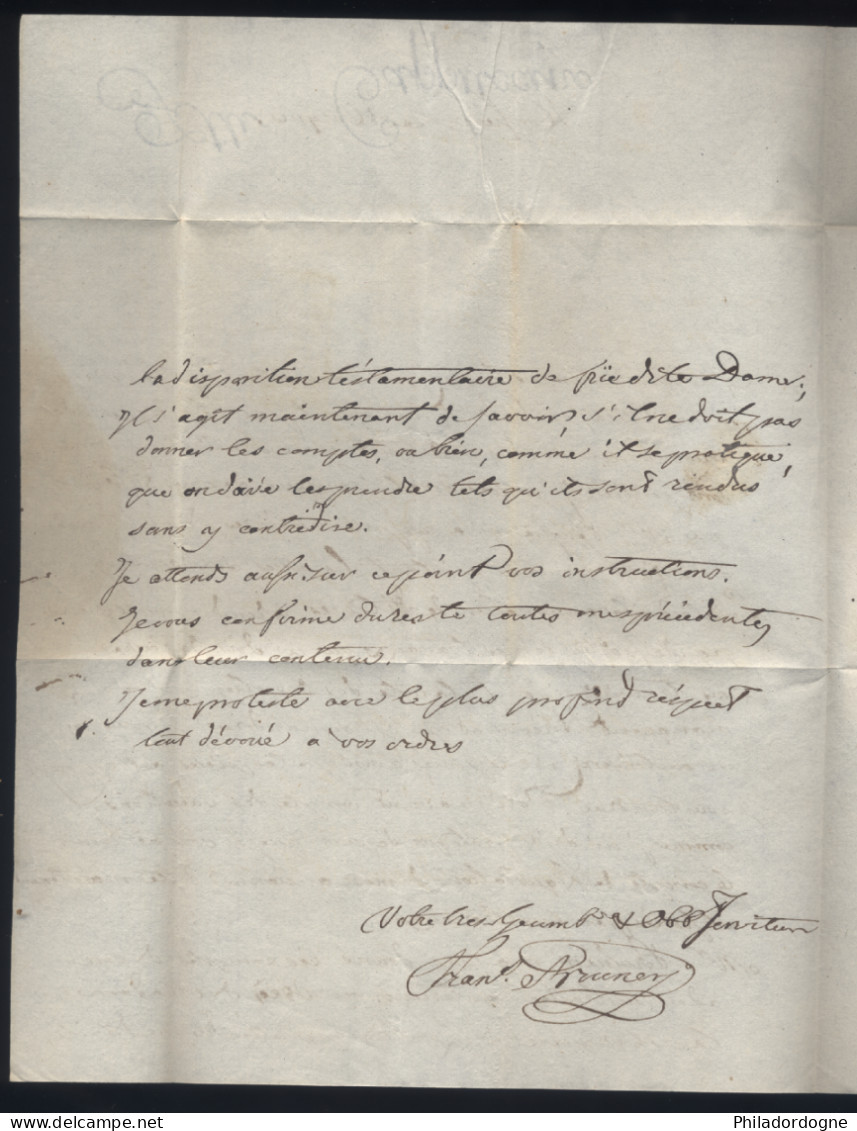 la disposition téstamentaire de priedite Dame,
Il s'agit maintenant de savoir, s'il ne doit pas
donner les comptes, ou bien, comme il se pratique,
que on daive les prendre tels qu'ils sont rendus
sans y contrédire.
Je attends aussi sur ce point vos instructions.
Je vous confirme du reste toutes mes précedentes
dans leur contenu.
Je me proteste avec le plus profond réspect
tout dévoué a vos ordres
Votre tres heumb. & Obb Serviteur
Fran.
www.delcampe.net
Philadordogne